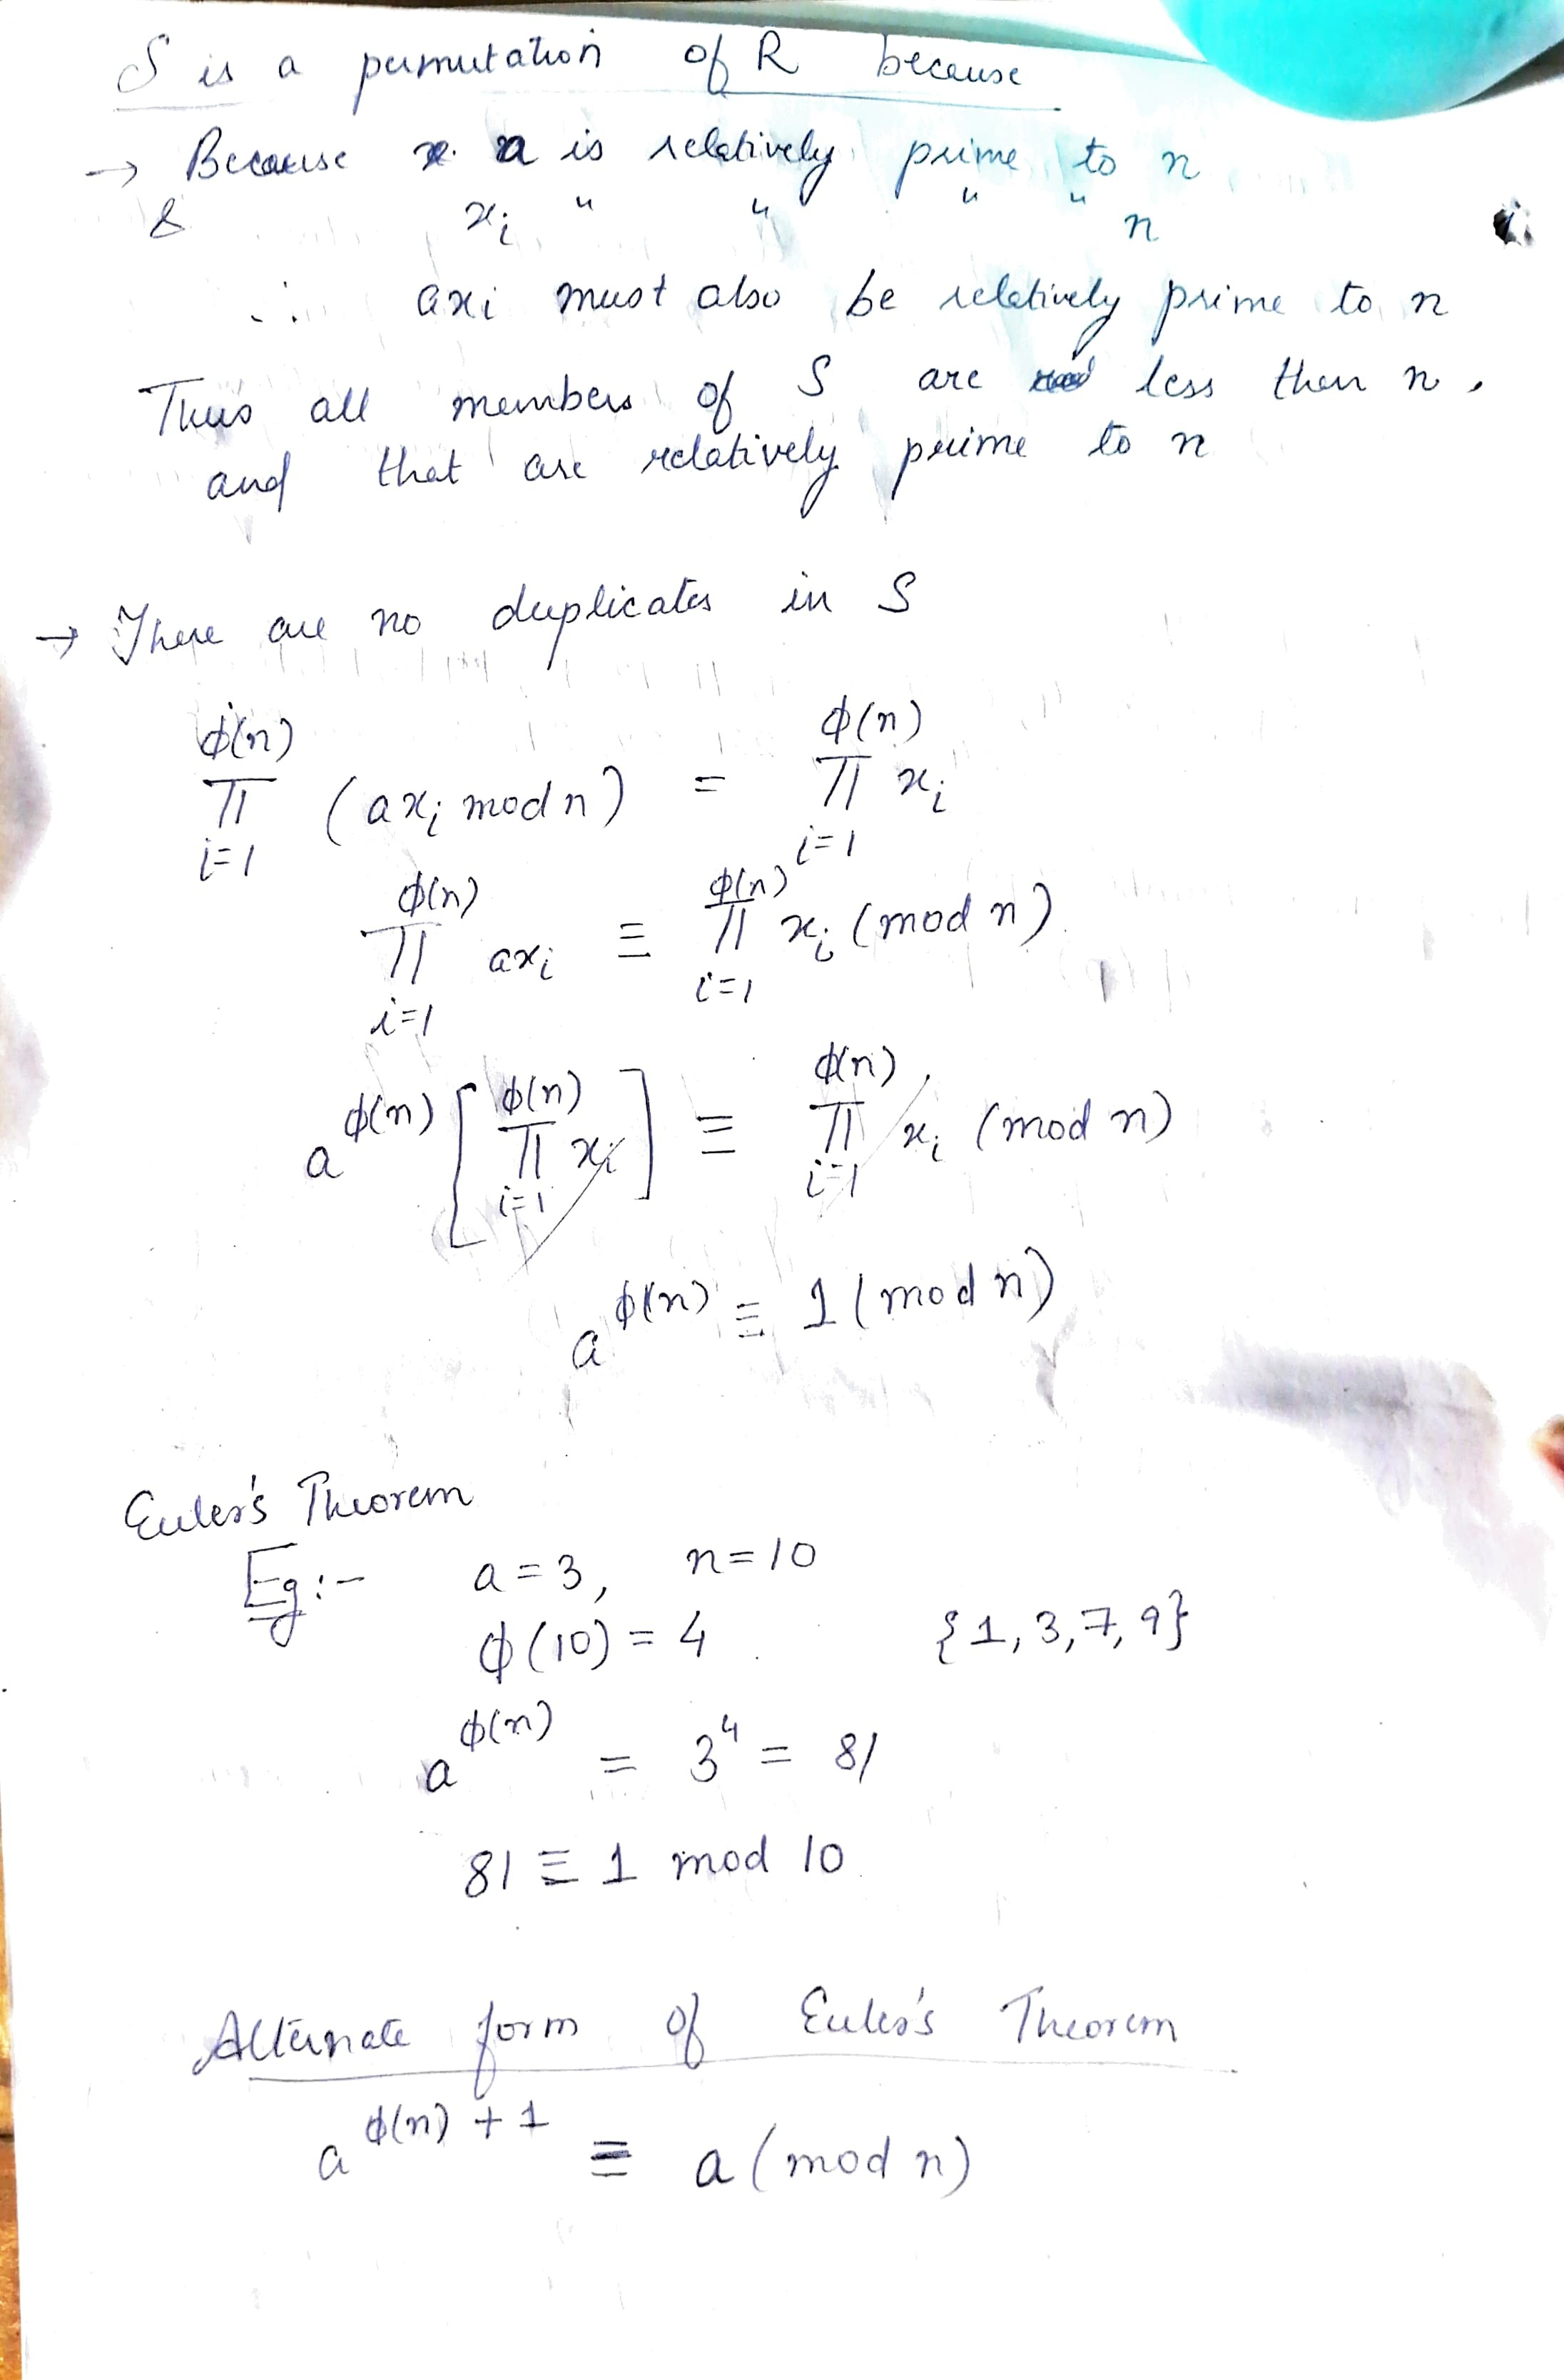 S is a permutation of R because
→ Because a is relatively prime to n
& xᵢ " " " " n
∴ axi must also be relatively prime to n
Thus all members of S are less then n,
and that are relatively prime to n
→ There are no duplicates in S
ϕ(n) ϕ(n)
∏ (axᵢ mod n) = ∏ xᵢ
i=1 i=1
ϕ(n) ϕ(n)
∏ axᵢ ≡ ∏ xᵢ (mod n)
i=1 i=1
a^ϕ(n) [ ϕ(n) ∏ i=1 xᵢ ] ≡ ϕ(n) ∏ i=1 xᵢ (mod n)
a^ϕ(n) ≡ 1 (mod n)
Euler's Theorem
Eg:- a = 3, n = 10
ϕ(10) = 4 {1, 3, 7, 9}
a^ϕ(n) = 3⁴ = 81
81 ≡ 1 mod 10
Alternate form of Euler's Theorem
a^ϕ(n) + 1 ≡ a (mod n)